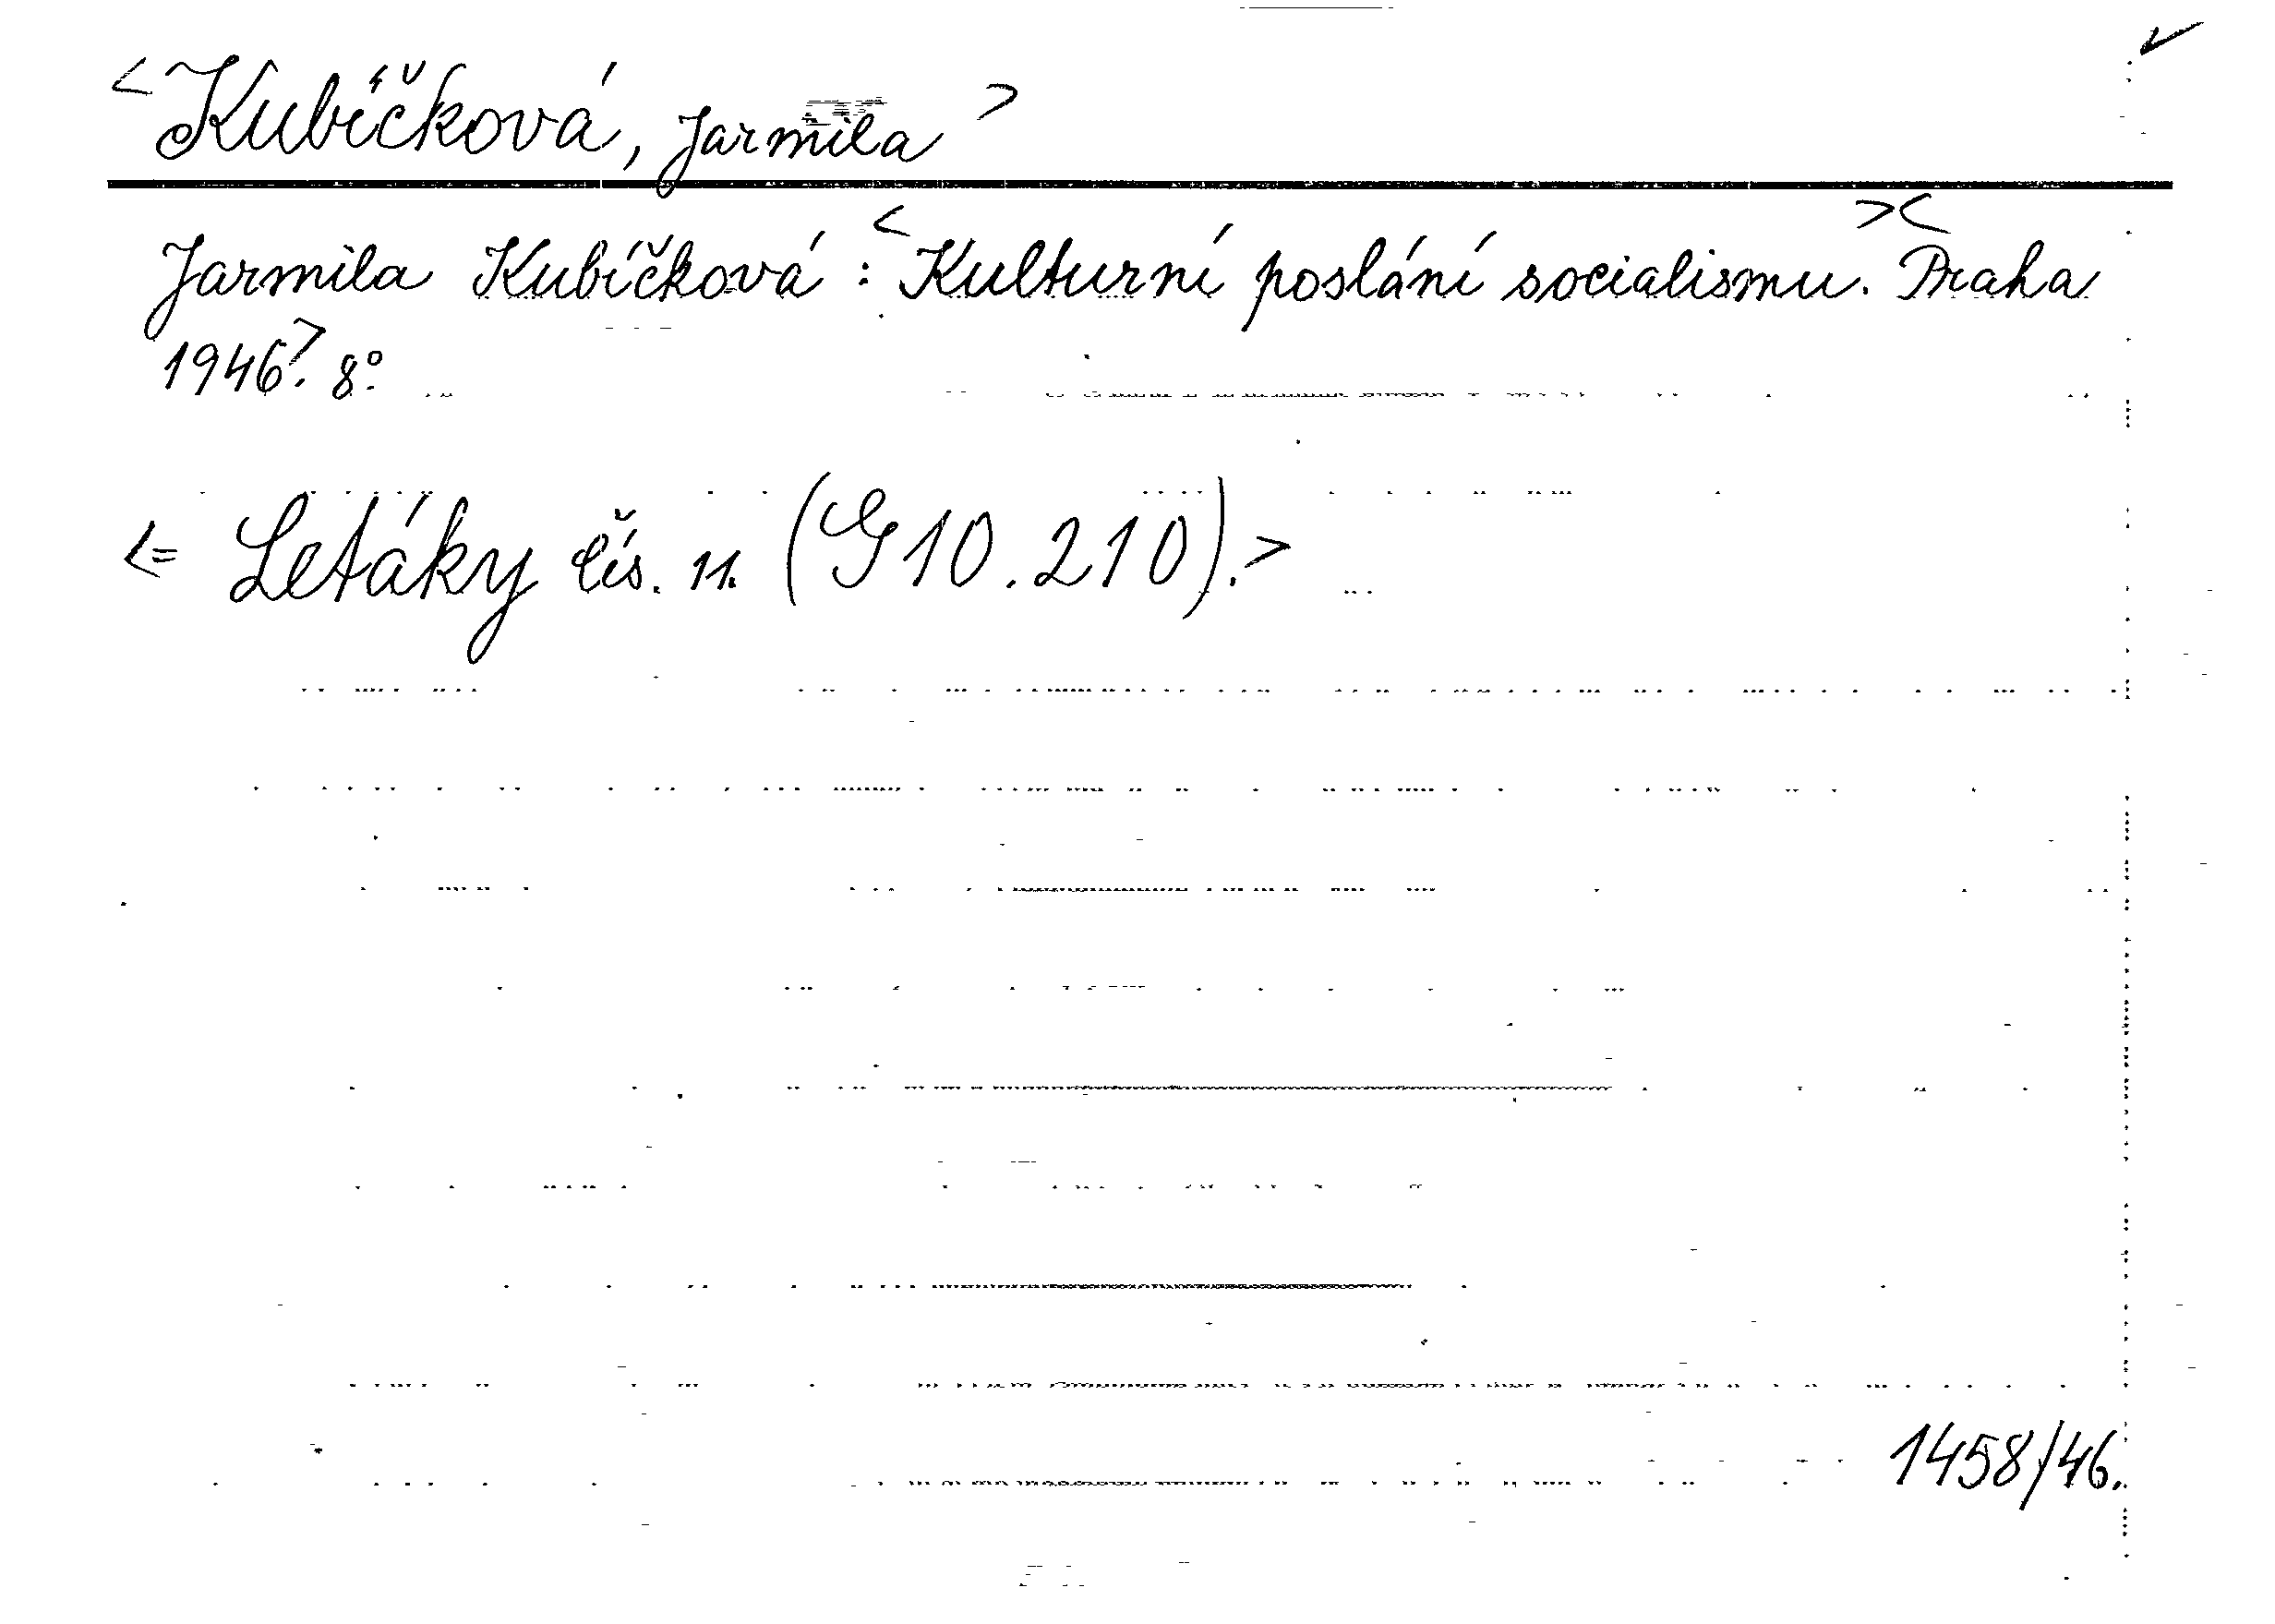 <Kubíčková, Jarmila>
Jarmila Kubíčková: <Kulturní poslání socialismu.>< Praha
1946>. 8°.
<= Letáky čís. 11. (G 10.210).>
1458/46.